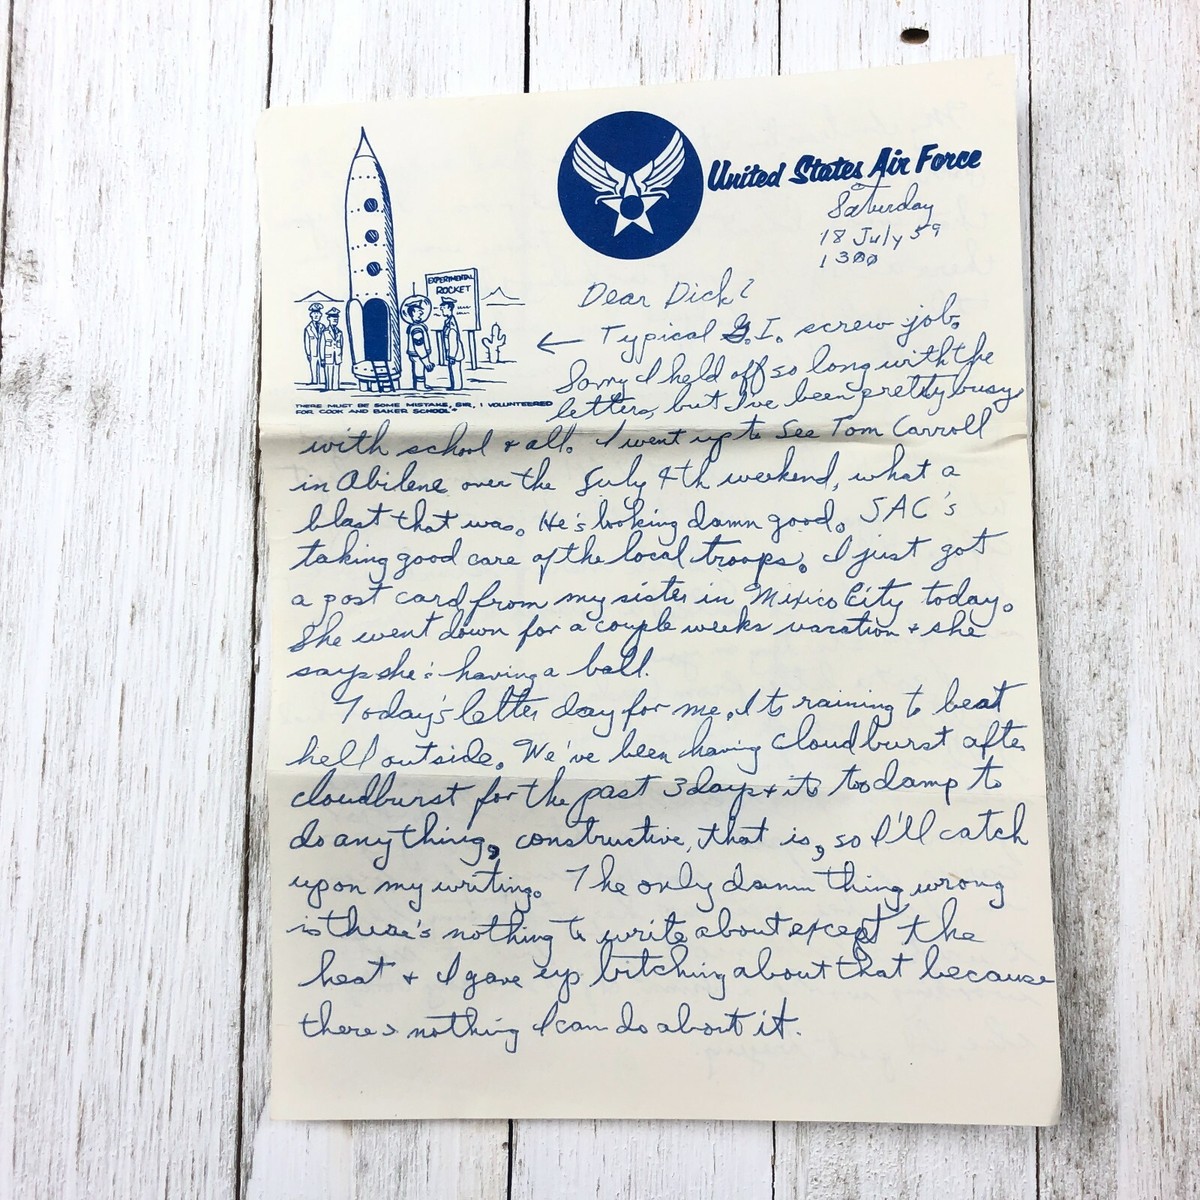 United States Air Force
Saturday
18 July 59
1300
EXPERIMENTAL
ROCKET
"THERE MUST BE SOME MISTAKE, SIR, I VOLUNTEERED
FOR COOK AND BAKER SCHOOL"
Dear Dick:
← Typical G.I. screw job.
Sorry I held off so long with the
letters, but I've been pretty busy
with school + all. I went up to see Tom Carroll
in Abilene over the July 4th weekend, what a
blast that was. He's looking damn good. SAC's
taking good care of the local troops. I just got
a post card from my sister in Mexico City today.
She went down for a couple weeks vacation + she
says she's having a ball.
Today's letter day for me. Its raining to beat
hell outside. We've been having cloudburst after
cloudburst for the past 3 days + its too damp to
do anything, constructive, that is, so I'll catch
up on my writing. The only damn thing wrong
is there's nothing to write about except the
heat + I gave up bitching about that because
there's nothing I can do about it.